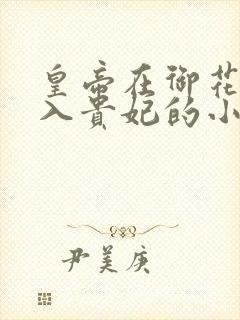 皇帝在御花
入贵妃的小
尹美庚